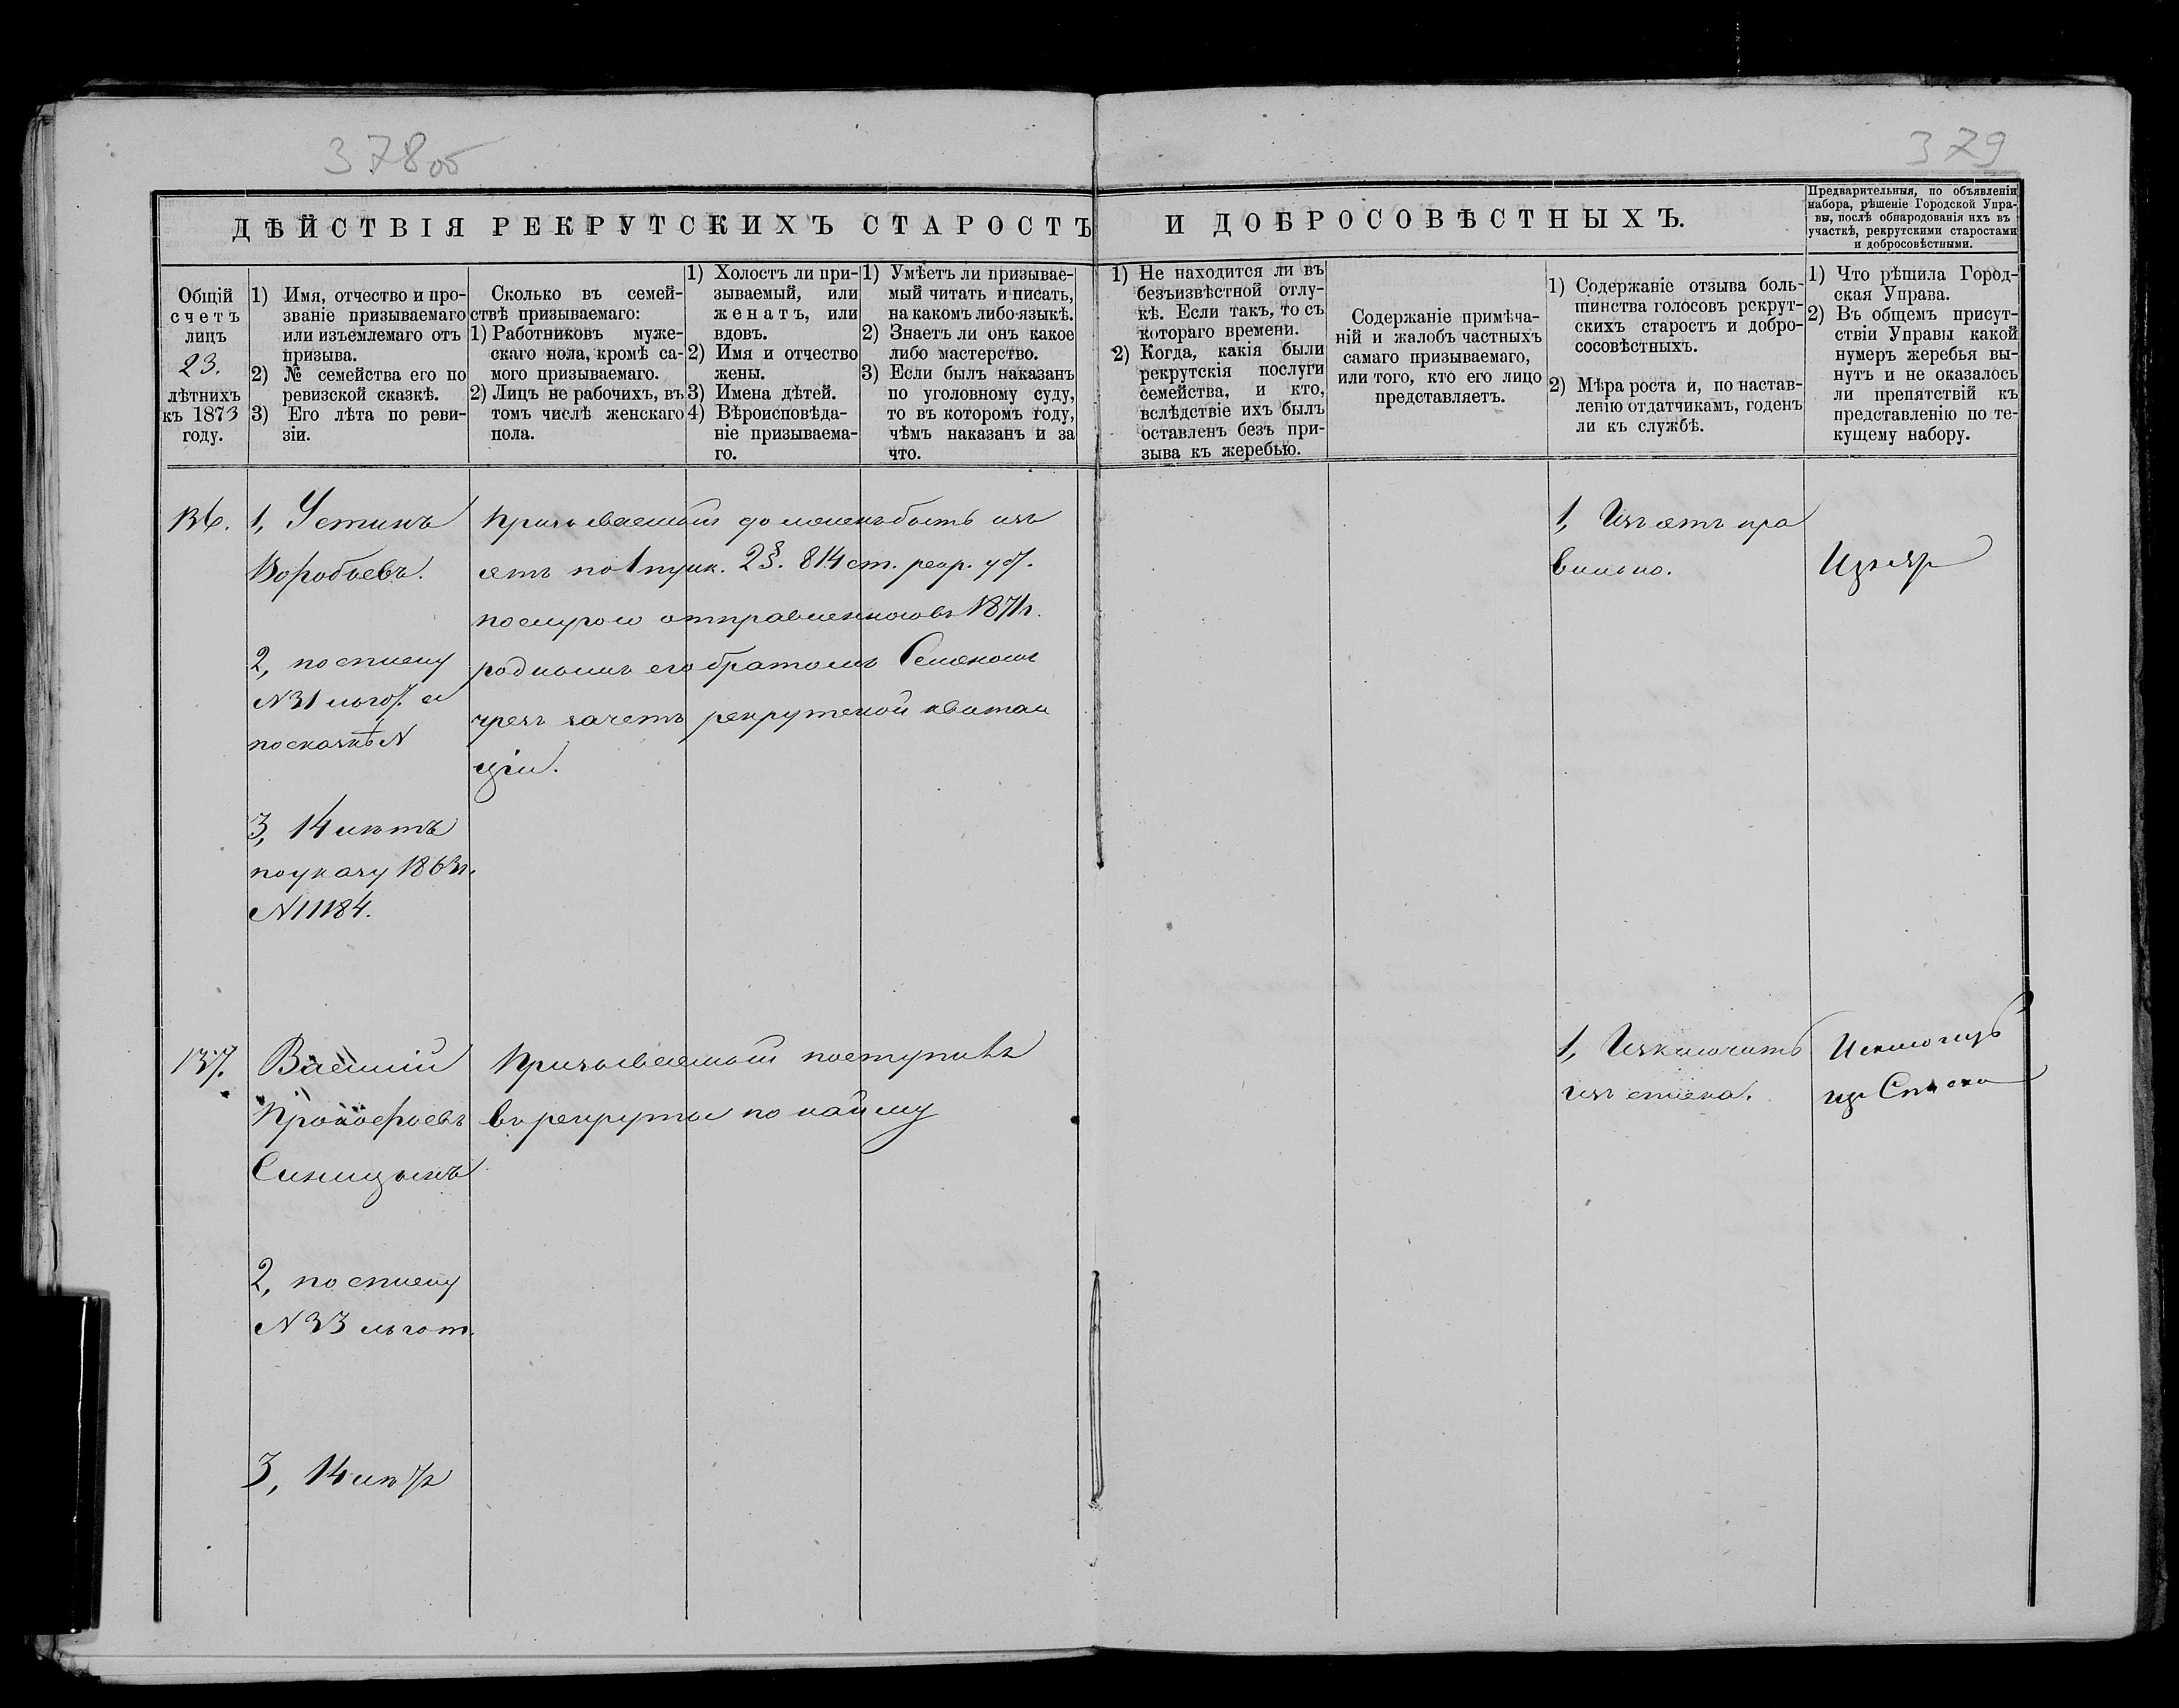 378об
379
ДѢЙСТВІЯ РЕКРУТСКИХЪ СТАРОСТЪ И ДОБРОСОВѢСТНЫХЪ.
Предварительныя, по объявленіи
набора, рѣшеніе Городской Упра-
вы, послѣ обнародованія ихъ въ
участкѣ, рекрутскими старостами
и добросовѣстными.
Общій
счетъ
лицъ
23.
лѣтнихъ
къ 1873
году.
1) Имя, отчество и про-
званіе призываемаго
или изъемлемаго отъ
призыва.
2) № семейства его по
ревизской сказкѣ.
3) Его лѣта по реви-
зіи.
Сколько въ семей-
ствѣ призываемаго:
1) Работниковъ муже-
скаго пола, кромѣ са-
мого призываемаго.
2) Лицъ не рабочихъ, въ
томъ числѣ женскаго
пола.
1) Холостъ ли при-
зываемый, или
женатъ, или
вдовъ.
2) Имя и отчество
жены.
3) Имена дѣтей.
4) Вѣроисповѣда-
ніе призываема-
го.
1) Умѣетъ ли призывае-
мый читать и писать,
на какомъ либо языкѣ.
2) Знаетъ ли онъ какое
либо мастерство.
3) Если былъ наказанъ
по уголовному суду,
то въ которомъ году,
чѣмъ наказанъ и за
что.
1) Не находится ли въ
безъизвѣстной отлу-
кѣ. Если такъ, то съ
котораго времени.
2) Когда, какія были
рекрутскія послуги
семейства, и кто,
вслѣдствіе ихъ былъ
оставленъ безъ при-
зыва къ жеребью.
Содержаніе примѣча-
ній и жалобъ частныхъ
самаго призываемаго,
или того, кто его лицо
представляетъ.
1) Содержаніе отзыва боль-
шинства голосовъ рекрут-
скихъ старостъ и добро-
сосовѣстныхъ.
2) Мѣра роста и, по настав-
ленію отдатчикамъ, годенъ
ли къ службѣ.
1) Что рѣшила Город-
ская Управа.
2) Въ общемъ присут-
ствіи Управы какой
нумеръ жеребья вы-
нутъ и не оказалось
ли препятствій къ
представленію по те-
кущему набору.
136.
1, Устинъ
Воробьевъ.
2, по списку
N31 льгот. а
по сказкѣ N
3, 14 лѣтъ
по указу 1863г.
N11184.
Призываемый долженъ быть изъ
ятъ по 1 пунк. 2§. 814 ст. рекр. уст.
послугою отправленною въ 1871г.
роднымъ его братомъ Семеномъ
чрезъ зачетъ рекрутской квитан
ціи.
1, Изъятъ пра
вильно.
Изъят
137.
Василій
Прокофьевъ
Синицынъ
2, по списку
N33 льгот.
3, 14 лѣтъ
Призываемый поступилъ
въ рекруты по найму
1, Изключить
изъ списка.
Исключить
изъ Списка